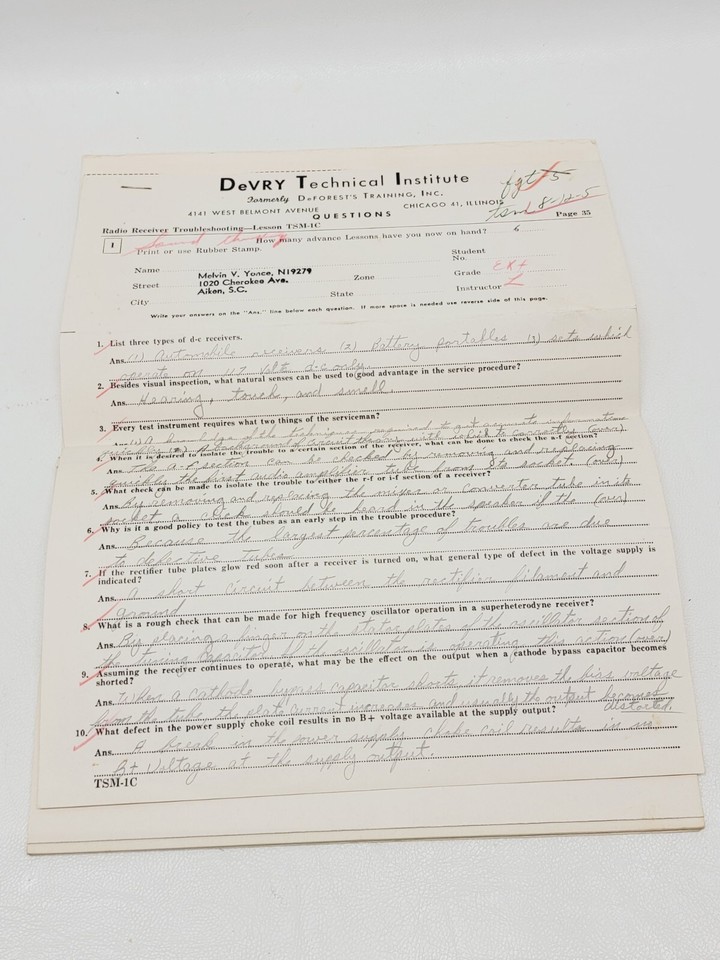 DeVRY Technical Institute
Formerly DeFOREST'S TRAINING, INC.
4141 WEST BELMONT AVENUE CHICAGO 41, ILLINOIS
QUESTIONS
Radio Receiver Troubleshooting—Lesson TSM-1C Page 35
1 How many advance Lessons have you now on hand? 6
Print or use Rubber Stamp.
Student No.
Name Melvin V. Yonce, N19279 Zone Grade
Street 1020 Cherokee Ave. Instructor
City Aiken, S.C. State
Write your answers on the "Ans." line below each question. If more space is needed use reverse side of this page.
1. List three types of d-c receivers.
Ans. (1) Automobile receivers (2) Battery portables (3) sets which
operate on 117 Volt d-c only.
2. Besides visual inspection, what natural senses can be used to good advantage in the service procedure?
Ans. Hearing, touch, and smell.
3. Every test instrument requires what two things of the serviceman?
Ans. (1) A knowledge of the techniques required to get accurate information
quickly (2) A of circuit theory with which to correctly (over)
4. When it is desired to isolate the trouble to a certain section of the receiver, what can be done to check the a-f section?
Ans. The a-f section can be checked by removing and replacing
quickly the first audio amplifier tube from its socket (over)
5. What check can be made to isolate the trouble to either the r-f or i-f section of a receiver?
Ans. By removing and replacing the mixer or converter tube in its
socket a click should be heard in the speaker if the (over)
6. Why is it a good policy to test the tubes as an early step in the trouble procedure?
Ans. Because the largest percentage of troubles are due
to defective tubes.
7. If the rectifier tube plates glow red soon after a receiver is turned on, what general type of defect in the voltage supply is
indicated?
Ans. A short circuit between the rectifier filament and
ground
8. What is a rough check that can be made for high frequency oscillator operation in a superheterodyne receiver?
Ans. By placing a finger on the stator plates of the oscillator section of
the tuning capacitor. If the oscillator is operating this action (over)
9. Assuming the receiver continues to operate, what may be the effect on the output when a cathode bypass capacitor becomes
shorted?
Ans. When a cathode bypass capacitor shorts it removes the bias voltage
from the tube the plate current increases and usually the output becomes
distorted.
10. What defect in the power supply choke coil results in no B+ voltage available at the supply output?
Ans. A break in the power supply choke coil results in no
B+ Voltage at the supply output.
TSM-1C